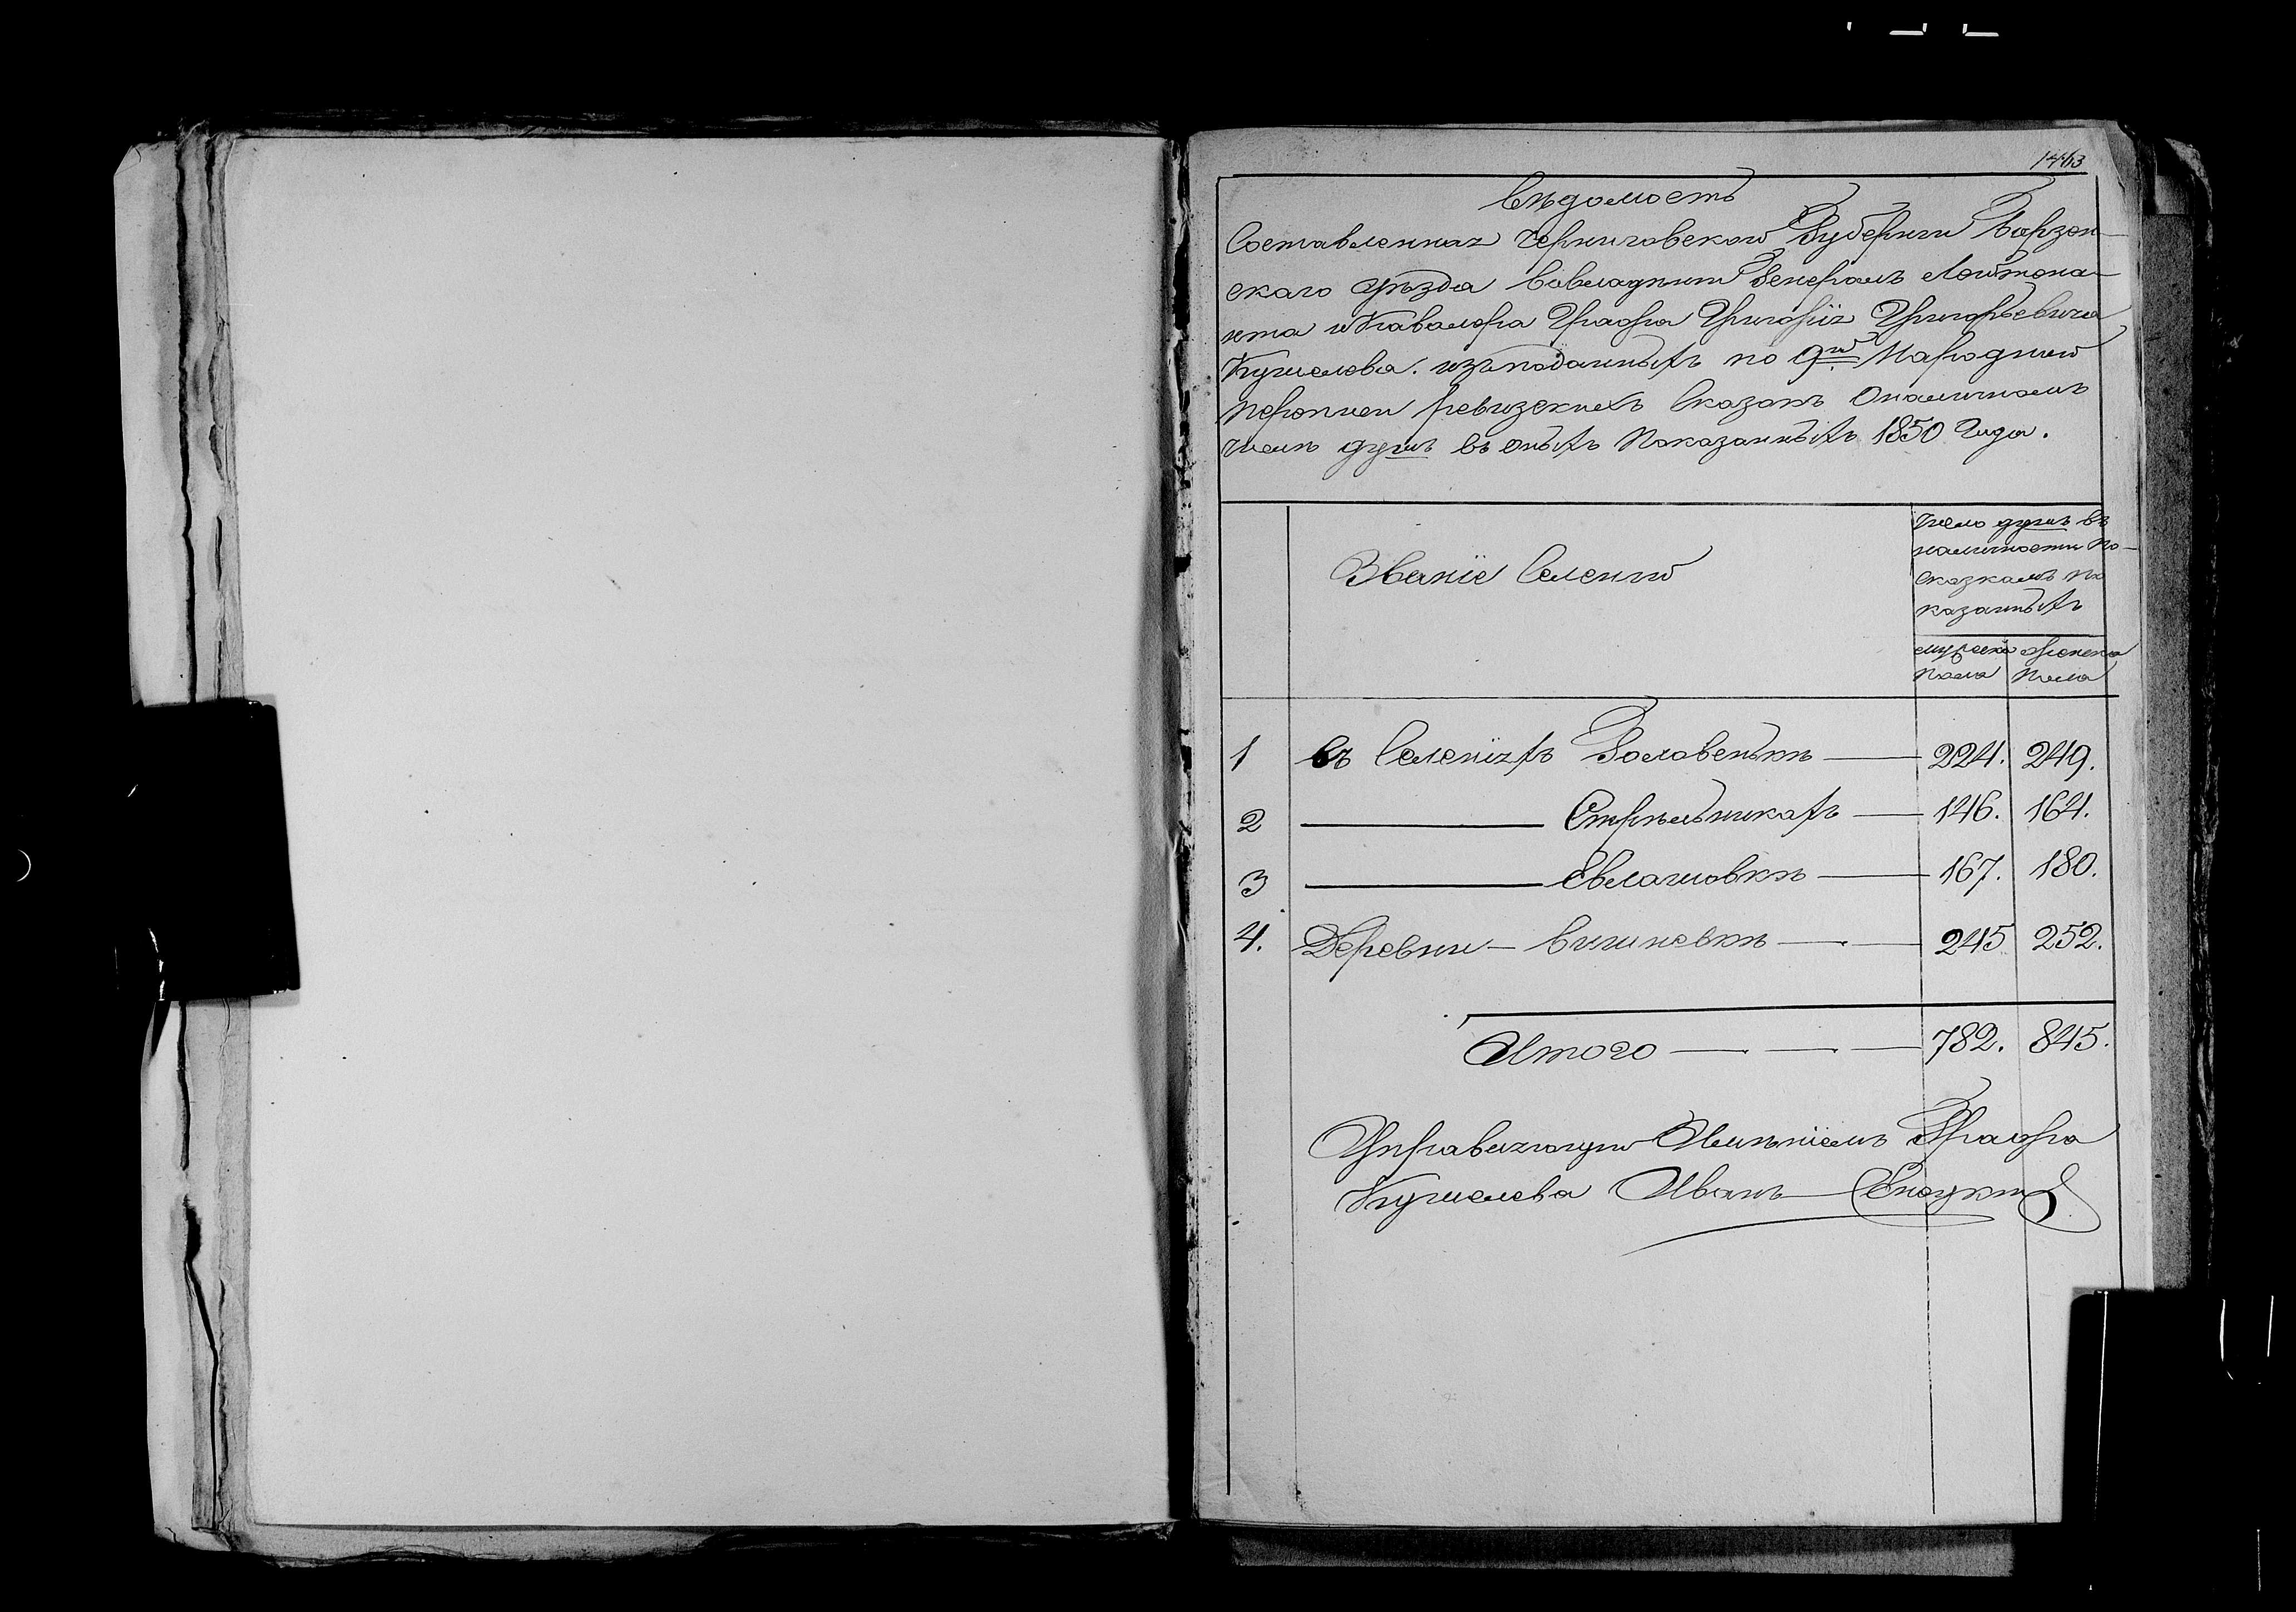 1443
Вѣдомость
Составленная Черниговской Губерніи Борзен-
скаго Уѣзда Вовладѣнии Генералъ Лейтена-
нта и Кавалера Графа Григорія Григорьевича
Кушелева. изъ поданныхъ по 9й Народной
переписи ревизскихъ Сказокъ О наличномъ
числѣ душъ въ оныхъ Показанныхъ 1850 Года.
Званіе Селеній
Число душъ въ
наличности по-
сказкамъ по
казанныхъ
мужеска женска
Пола Пола
1 въ Селеніяхъ Головенькѣ — 224. 249.
2 — Стрѣльникахъ — 146. 164.
3 — Евлашовкѣ — 167. 180.
4. Деревни — Вишневкѣ — 245 252.
Итого — 782. 845.
Управляющій Имѣніемъ Графа
Кушелева Иванъ